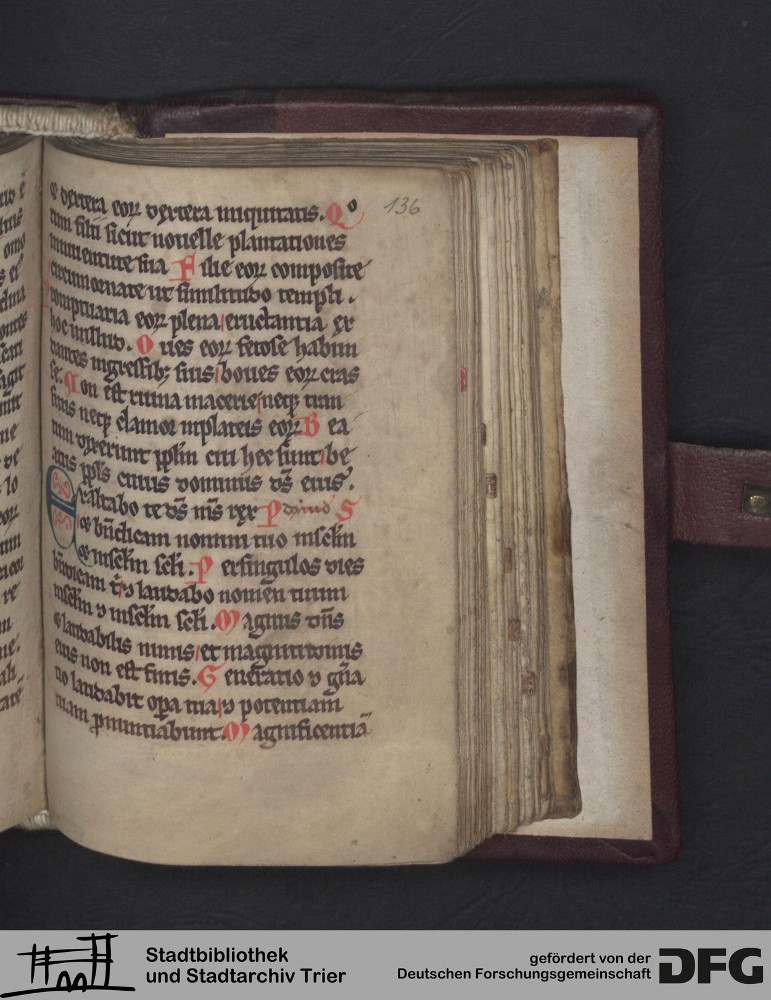 & dextera eoꝝ dextera iniquitatis. Qo
136
rum filii sicut nouelle plantationes
iniuuentute sua Filie eoꝝ composite
circumornate ut similitudo templi.
romptuaria eoꝝ plena eructantia ex
hoc inillud. Oues eoꝝ fetose habun
dantes ingressibꝫ suis boues eoꝝ cras
se. Non est ruina macerie neqꝫ tran
situs neqꝫ clamor inplateis eoꝝ Bea
tum dixerunt ppl̄m cui hec sunt be
atus ppl̄s cuius dominus d̄s eius.
Exaltabo te d̄s m̄s rex P dauid S
& bn̄dicam nomini tuo insclm̄
& insclm̄ scl̄i. Persingulos dies
bn̄dicam t̄ & laudabo nomen tuum
insclm̄ & insclm̄ scl̄i. Magnus dn̄s
& laudabilis nimis et magnitudinis
eius non est finis. Generatio & gn̄a
tio laudabit opa tua & potentiam
tuam pnuntiabunt. Magnificentiā
Stadtbibliothek
und Stadtarchiv Trier
gefördert von der
Deutschen Forschungsgemeinschaft
DFG